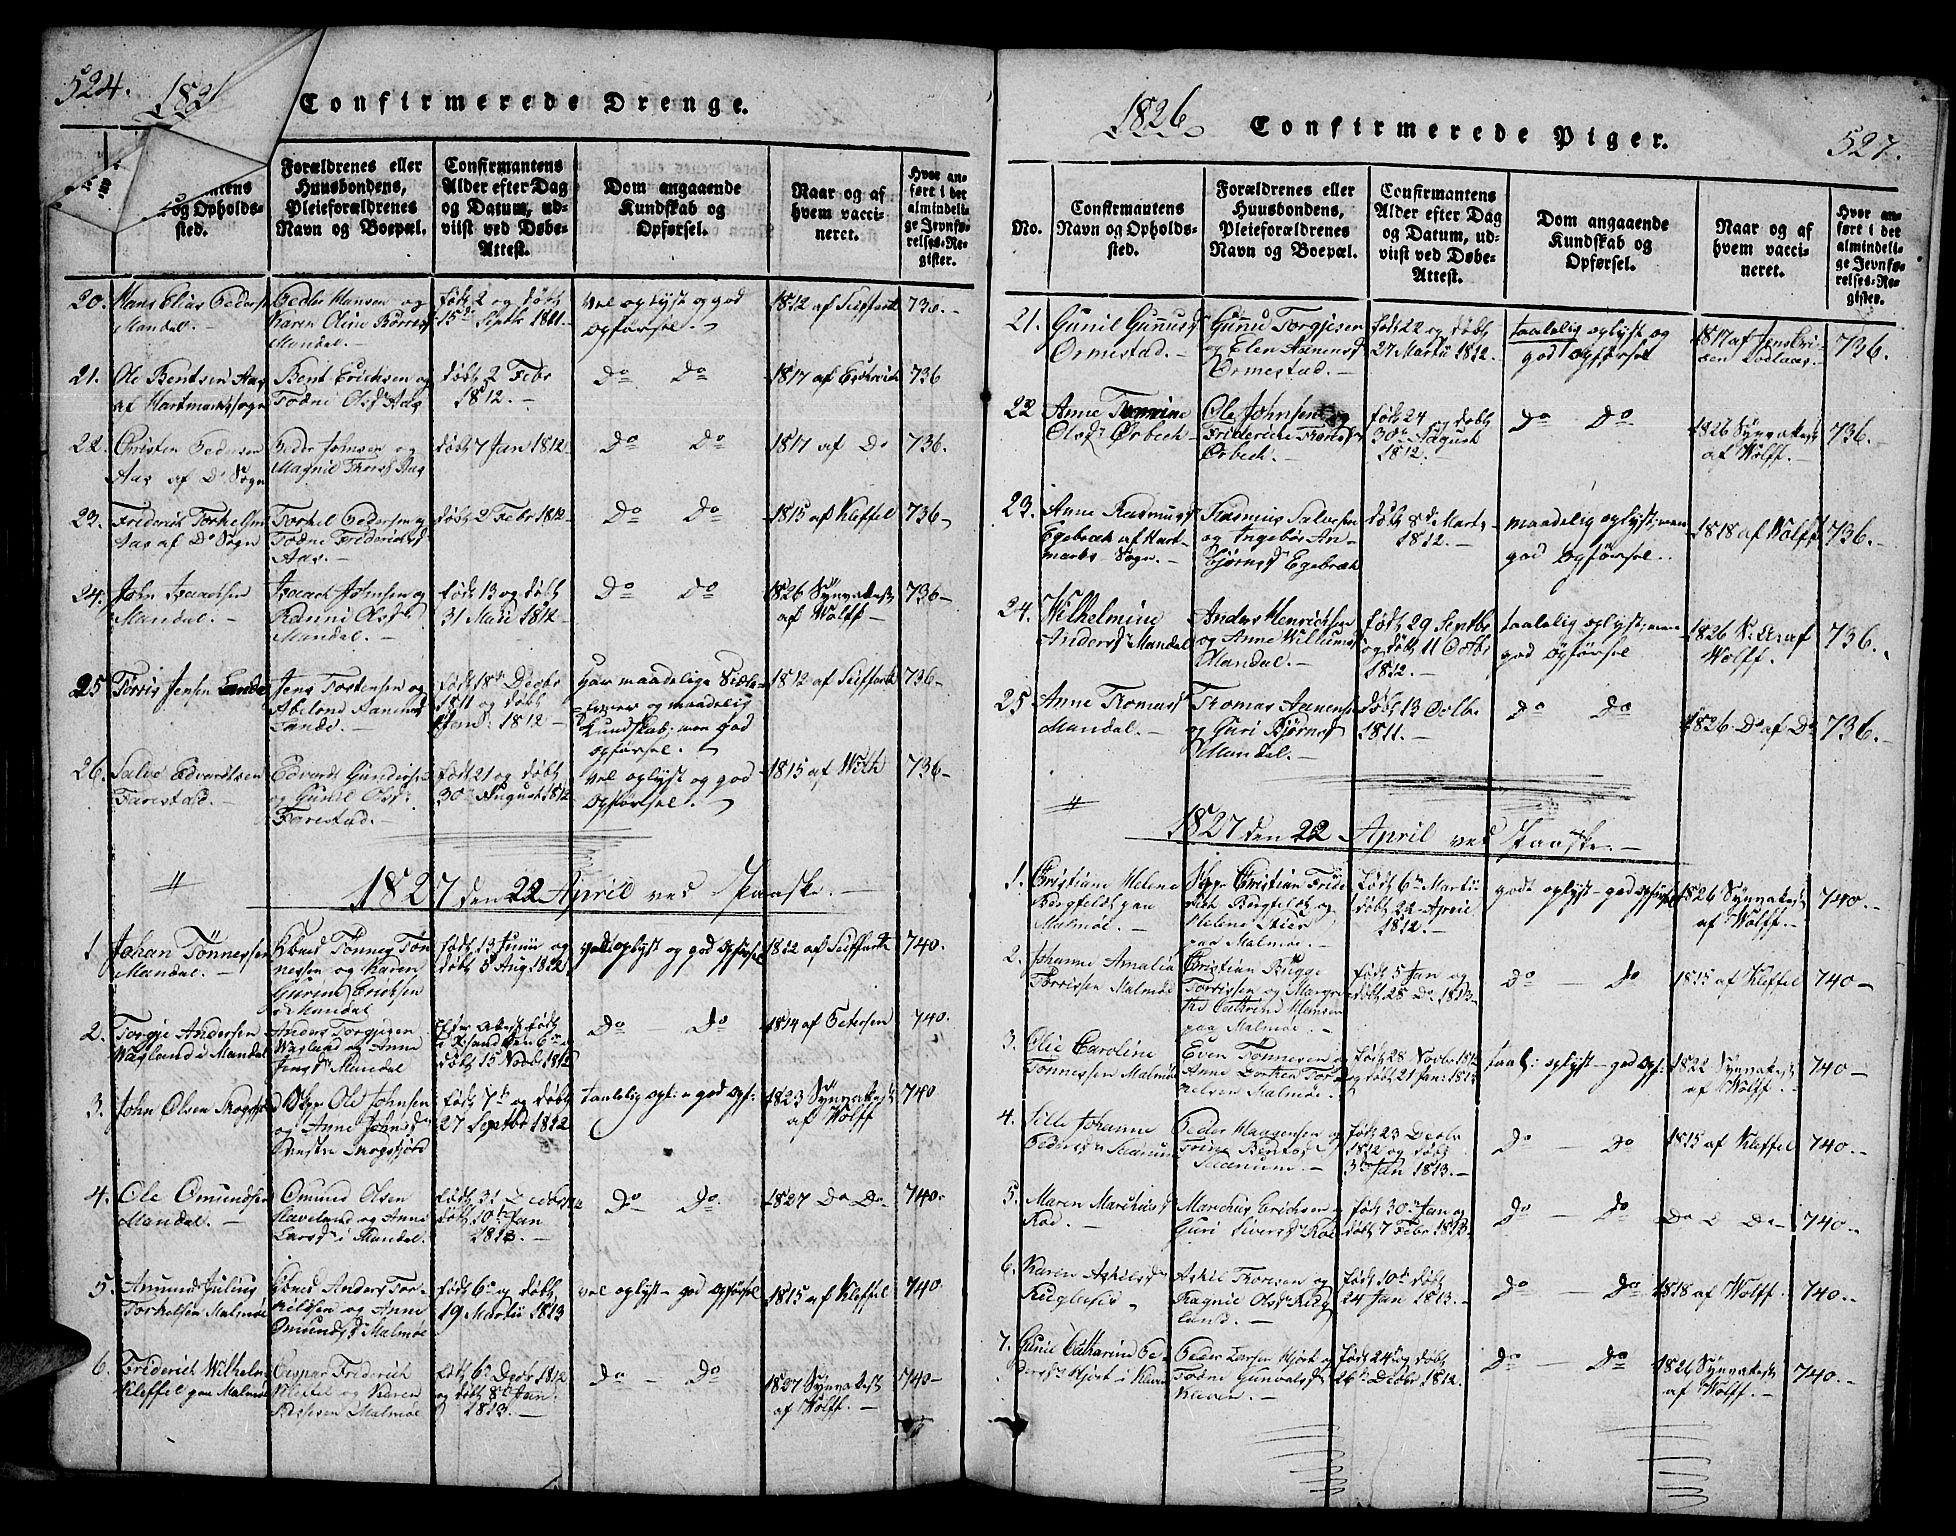 524.
182
Confirmerede Drenge.
Forældrenes eller Huusbondens, Pleieforældrenes Navn og Boepæl.
Confirmantens Alder efter Dag og Datum, udviist ved Døbe-Attest.
Dom angaaende Kundskab og Opførsel.
Naar og af hvem vaccineret.
Hvor anført i det almindelige Jevnførelses-Register.
20. Hans Elias Pedersen Mandal. Peder Hansen og Karen Oline Mandal. født 2 og døbt 15de Septbr 1811. vel oplyst og god opførsel. 1812 af Seiffarth 736.
21. Ole Bentsen Aas af Hartmarks sogn Bent Erichsen og Todne Olsdr Aas døbt 2 Febr 1812. Do Do 1817 af 736
22. Christen Pedersen Aas af Do Sogn Peder Johnsen og Magnil Aas døbt 7 Jan 1812 Do Do 1817 af Do 736.
23. Friderich Torkelsen Aas af Do Sogn Torkel Pedersen og Todne Friderichsdr Aas. døbt 2 Febr 1812 Do Do 1815 af Kleffel 736
24. John Isaachsen Mandal. Isaach Johnsen og Ranni Olsdr Mandal. født 13 og døbt 31 Maii 1812. Do Do 1826 Synvaket af Wolff 736
25 Tørris Jensen Lande Jens Tostensen og Abelone Aanensdr Lande. født 18de Decbr 1811 og døbt Jan: 1812 har maadelige og maadelig Kundskab, men god opførsel. 1812 af Seiffarth 736
26. Salve Edvardsen Farestad. Edvardt Gundersen og Gunil Olsdr Farestad. født 21 og døbt 30te August 1812 vel oplyst og god opførsel. 1815 af Woth 736
1827 den 22 April ved Paaske.
1 Johan Tönnessen Mandal. Tönnes Tönnessen og Karen Gurine Erichsen i Mandal født 13 Junii og døbt 5 Aug. 1812 vel oplyst og god opførsel 1812 af Seiffarth 740.
2. Torgje Andersen Wagland i Mandal Anders Torgjusen Wagland og Anne Mandal født i Xsand den 6te døbt 15 Novbr 1812 Do Do 1814 af Petersen 740.
3. John Olsen Skogsfjord Skpr Ole Johnsen og Anne Johnsdr Skogsfjord født 7de og døbt 27 Septbr 1812 taalelig opl: og god opf: 1823 Synvaket af Wolff 740
4. Ole Omundsen Mandal. Omund Olsen og Anne Larsdr i Mandal. født 31 Decbr døbt 10de Jan 1813. Do Do 1827 Do Do 740.
5. Anund Juling Torkelsen Malmöe Anders Torkildsen og Anne Omundsdr Malmöe født 6te og døbt 19 Martii 1813 vel oplyst god opførsel 1815 af Kleffel 740
6. Friderich Wilhelm Kleffel paa Malmöe Caspar Friderich Kleffel og Karen Malmöe født 6te Decbr 1812 og døbt 8de Jan 1813. Do Do 1827 Synvaket af Wolff. 740
1826
Confirmerede Piger.
527.
No.
Confirmantens Navn og Opholdssted.
Forældrenes eller Huusbondens, Pleieforældrenes Navn og Boepæl.
Confirmantens Alder efter Dag og Datum, udviist ved Døbe-Attest.
Dom angaaende Kundskab og Opførsel.
Naar og af hvem vaccineret.
Hvor anført i det almindelige Jevnførelses-Register.
21. Gunil Gunusdr Ormestad. Gunu Torgjesen og Elen Aanensdr Ormestad. født 22 og døbt 27 Martii 1812. taalelig oplyst og god opførsel 1817 af Jens 736.
22 Anne Olsdr Ørbech Ole Johnsen og Friderica Ørbech. født 24 og døbt 30 August 1812. Do Do 1826 Synvaket af Wolff. 736.
23. Anne Rasmusdr Egebræk af Hartmarks Sogn. Rasmus Salvesen og Ingebor Anbjørnsdr Egebræk døbt 8de Marts 1812. maadelig oplyst, men god opførsel. 1818 af Wolff 736.
24. Wilhelmine Andersdr Mandal Anders Henrichsen og Anne Willumsdr Mandal. født 29 Septbr og døbt 11 Octbr 1812. taalelig oplyst, men god opførsel 1826 af Wolff. 736.
25 Anne Thomasdr Mandal. Thomas Aanensen og Guri Bjørnsdr Mandal. døbt 13 Octbr 1811. Do Do 1826 Do af Do 736.
1827 den 22 April ved Paaske.
1. Christiane Helene Bergfeldt paa Malmöe. Skpr Christian Friderich Bergfeldt og Helene Stier paa Malmöe født 6te Martii døbt 22 Aprile 1812. godt oplyst god opførsel 1826 Synvaket af Wolff. 740.
2. Johanne Amalia Tørrissen Malmöe Christian Bugge Tørrissen og Margrethe Cathrine Hansen paa Malmöe. født 5 Jan og døbt 28 Do 1813. Do Do 1815 af Kleffel 740
3. Olie Caroline Tönnessen Malmöe Even Tönnesen og Anne Dorthea Malmöe. født 28 Novbr 1812 og døbt 21 Jan: 1813 taal: oplyst god opf: 1822 Synvaket af Wolff. 740
4. Sille Johanne Pedersdr Sæanum Peder Haagensen og Bentsdr Sæanum. født 23 Decbr 1812 og døbt 3die Jan 1813. Do Do 1815 af Kleffel 740.
5. Maren Marchusdr Roe. Marchus Erichsen og Guri Siversdr Roe født 30te Jan og døbt 7 Febr 1813. Do Do Do Do 740.
6. Karen Askilsdr Askil Thorsen og Ragnil Olsdr født 10de døbt 24 Jan 1813. Do Do 1818 af Wolff. 740.
7. Cathrine Pedersdr Hjort i Kleven Peder Larsen Hjort og Todne Gunvalsdr Kleven. født 24de og døbt 26te Decbr 1812. Do Do 1826 Synvaket af Wolff. 740.